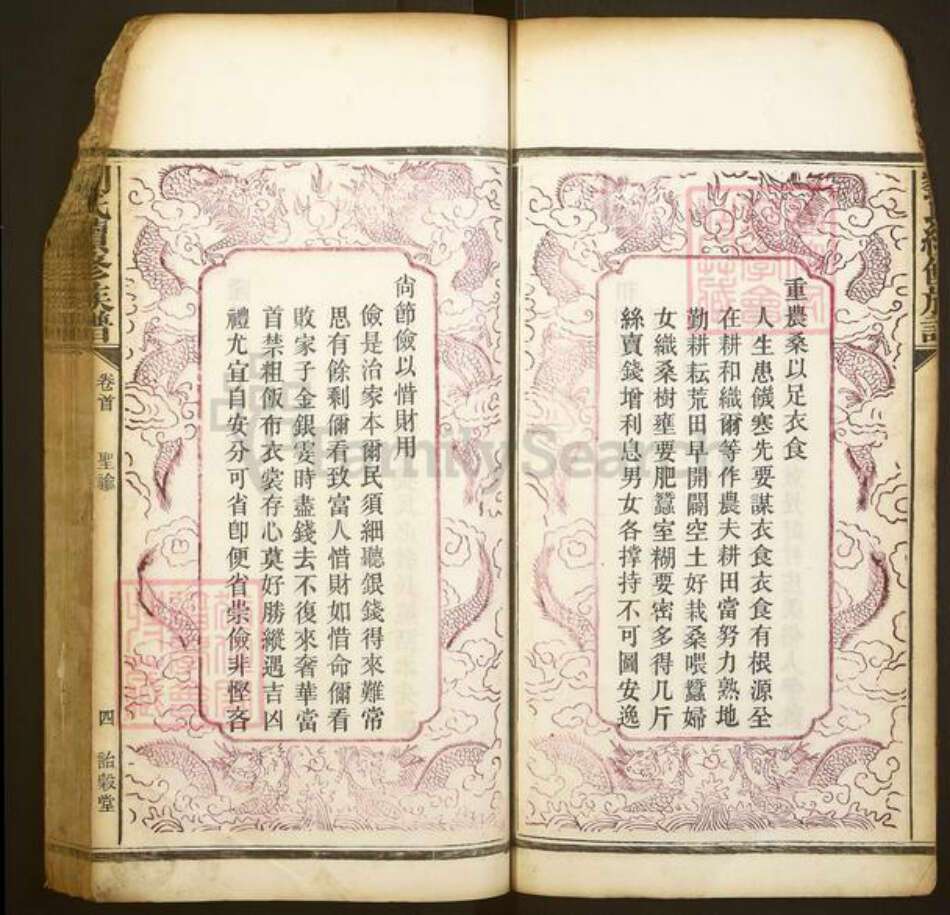 重農桑以足衣食
人生患饑寒先要謀衣食衣食有根源全
在耕和織爾等作農夫耕田當努力熟地
勤耕耘荒田早開闢空土好栽桑喂蠶婦
女織桑樹壅要肥蠶室糊要密多得几斤
絲賣錢增利息男女各撑持不可圖安逸
尙節儉以惜財用
儉是治家本爾民須細聽銀錢得來難常
思有餘剩儞看致富人惜財如惜命儞看
敗家子金銀霎時盡錢去不復來奢華當
首禁粗飯布衣裳存心莫好勝縱遇吉凶
禮尤宜自安分可省卽便省崇儉非慳吝
氏續修族譜
卷首
聖諭
四
詒穀堂
FamilySearch